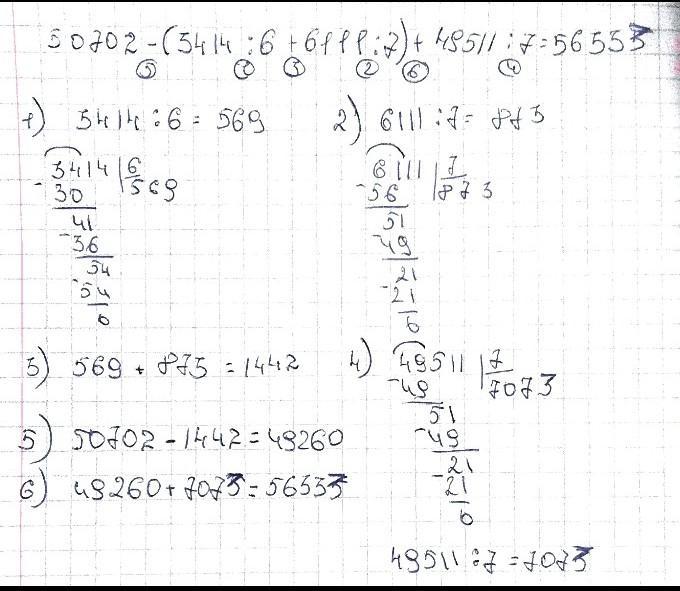 50702 - (3414 : 6 + 6111 : 7) + 49511 : 7 = 56333
5 1 3 2 6 4
1) 3414 : 6 = 569
3414 | 6
- 30 569
41
- 36
54
- 54
0
2) 6111 : 7 = 873
6111 | 7
- 56 873
51
- 49
21
- 21
0
3) 569 + 873 = 1442
4) 49511 | 7
- 49 7073
51
- 49
21
- 21
0
49511 : 7 = 7073
5) 50702 - 1442 = 49260
6) 49260 + 7073 = 56333